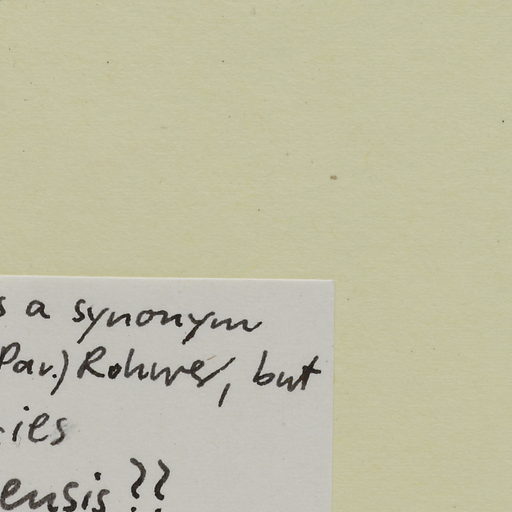 s a synonym
Pav.) Rohwer, but
cies
ensis ??